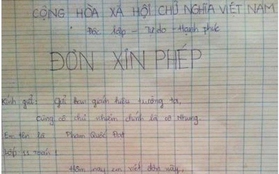 CỘNG HÒA XÃ HỘI CHỦ NGHĨA VIỆT NAM
Độc lập - Tự do - Hạnh phúc
ĐƠN XIN PHÉP
Kính gửi: Ban giám hiệu trường ta,
Cùng cô chủ nhiệm chính là vợ
Em tên là Phạm Quốc Đạt
Lớp 11
Hôm nay em viết đơn này,